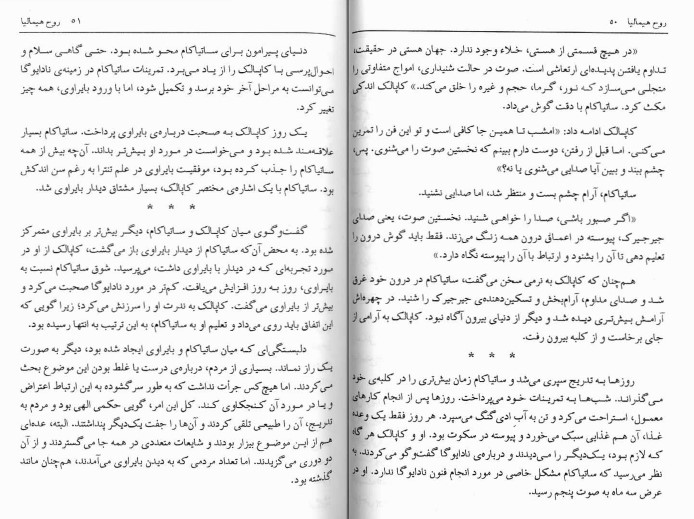 روح هیمالیا ۵۰
«در هیچ قسمتی از هستی، خلاء وجود ندارد. جهان هستی در حقیقت،
تداوم یافتن پدیده‌ای ارتعاشی است. صوت در حالت شنیداری، امواج متفاوتی را
متجلی می‌سازد که نور، گرما، حجم و غیره را خلق می‌کند.» کاپالک اندکی
مکث کرد. ساتیاکام با دقت گوش می‌داد.
کاپالک ادامه داد: «امشب تا همین جا کافی است و تو این فن را تمرین
می‌کنی. اما قبل از رفتن، دوست دارم ببینم که نخستین صوت را می‌شنوی. پس،
چشم ببند و ببین آیا صدایی می‌شنوی یا نه؟»
ساتیاکام، آرام چشم بست و منتظر شد، اما صدایی نشنید.
«اگر صبور باشی، صدا را خواهی شنید. نخستین صوت، یعنی صدای
جیرجیرک، پیوسته در اعماق درون همه زنگ می‌زند. فقط باید گوش درون را
تعلیم دهی تا آن را بشنود و ارتباط با آن را پیوسته نگاه دارد.»
هم‌چنان که کاپالک به نرمی سخن می‌گفت، ساتیاکام در درون خود غرق
شد و صدای مداوم، آرام‌بخش و تسکین‌دهنده‌ی جیرجیرک را شنید. در چهره‌اش
آرامش بیش‌تری دیده شد و دیگر از دنیای بیرون آگاه نبود. کاپالک به آرامی از
جای برخاست و از کلبه بیرون رفت.
* * *
روزها به تدریج سپری می‌شد و ساتیاکام زمان بیش‌تری را در کلبه‌ی خود
می‌گذراند. شب‌ها به تمرینات خود می‌پرداخت. روزها پس از انجام کارهای
معمول، استراحت می‌کرد و تن به آب ادی‌گنگ می‌سپرد. هر روز فقط یک وعده
غذا، آن هم غذایی سبک می‌خورد و پیوسته در سکوت بود. او و کاپالک هر گاه
که لازم بود، یک‌دیگر را می‌دیدند و درباره‌ی نادایوگا گفت‌وگو می‌کردند. به
نظر می‌رسید که ساتیاکام مشکل خاصی در مورد انجام فنون نادایوگا ندارد. او در
عرض سه ماه به صوت پنجم رسید.
۵۱ روح هیمالیا
دنیای پیرامون برای ساتیاکام محو شده بود. حتی گاهی سلام و
احوال‌پرسی با کاپالک را از یاد می‌برد. تمرینات ساتیاکام در زمینه‌ی نادایوگا
می‌توانست به مراحل آخر خود برسد و تکمیل شود، اما با ورود بایراوی، همه چیز
تغییر کرد.
یک روز کاپالک به صحبت درباره‌ی بایراوی پرداخت. ساتیاکام بسیار
علاقه‌مند شده بود و می‌خواست در مورد او بیش‌تر بداند. آن‌چه بیش از همه
ساتیاکام را جذب کرده بود، موفقیت بایراوی در علم تنترا به رغم سن اندکش
بود. ساتیاکام با یک اشاره‌ی مختصر کاپالک، بسیار مشتاق دیدار بایراوی شد.
* * *
گفت‌وگوی میان کاپالک و ساتیاکام، دیگر بیش‌تر بر بایراوی متمرکز
شده بود. به محض آن‌که ساتیاکام از دیدار بایراوی باز می‌گشت، کاپالک از او در
مورد تجربه‌ای که در دیدار با بایراوی داشت، می‌پرسید. شوق ساتیاکام نسبت به
بایراوی، روز به روز افزایش می‌یافت. کم‌تر در مورد نادایوگا صحبت می‌کرد و
بیش‌تر از بایراوی می‌گفت. کاپالک به ندرت او را سرزنش می‌کرد؛ زیرا گویی که
این اتفاق باید روی می‌داد و تعلیم او به ساتیاکام، به این ترتیب به انتها رسیده بود.
دلبستگی‌ای که میان ساتیاکام و بایراوی ایجاد شده بود، دیگر به صورت
یک راز نماند. بسیاری از مردم، درباره‌ی درست یا غلط بودن این موضوع بحث
می‌کردند. اما هیچ‌کس جرأت نداشت که به طور سرگشوده به این ارتباط اعتراض
و یا در مورد آن کنجکاوی کند. کل این امر، گویی حکمی الهی بود و مردم به
تدریج، آن را طبیعی تلقی کردند و آن‌ها را جفت یک‌دیگر پنداشتند. البته، عده‌ای
هم از این موضوع بیزار بودند و شایعات متعددی در همه جا می‌گستردند و از آن
دو دوری می‌گزیدند. اما تعداد مردمی که به دیدن بایراوی می‌آمدند، هم‌چنان مانند
گذشته بود.